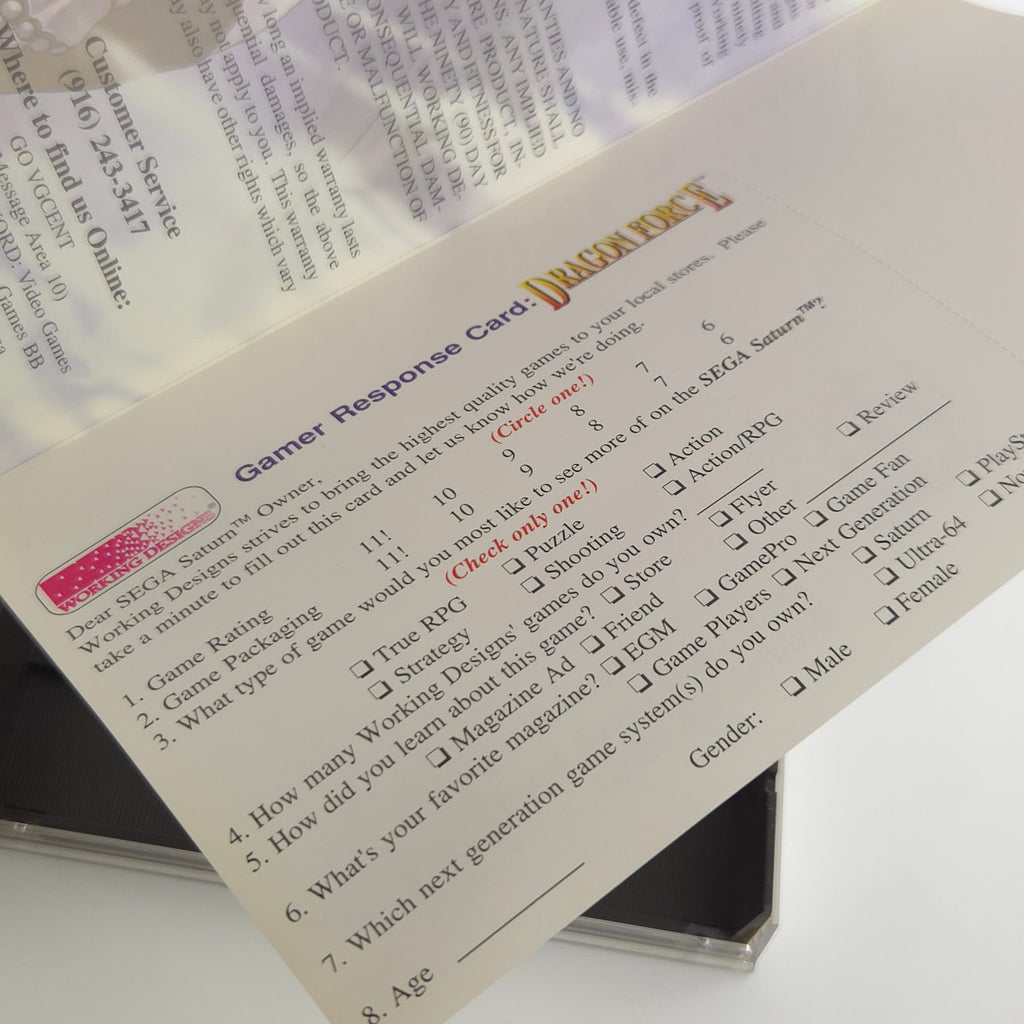 Customer Service
(916) 243-3417
Where to find us Online:
GO VGCENT
Message Area 10)
Video Games
Games BB
long an implied warranty lasts
damages, so the above
not apply to you. This warranty
also have other rights which vary
ANTIES AND NO
NATURE SHALL
ANY IMPLIED
PRODUCT, IN-
AND FITNESS FOR
NINETY (90) DAY
WILL WORKING DE-
CONSEQUENTIAL DAM-
OR MALFUNCTION OF
defect in the
proof of
WORKING DESIGNS®
Gamer Response Card: DRAGON FORCE™
Dear SEGA Saturn™ Owner,
Working Designs strives to bring the highest quality games to your local stores. Please
take a minute to fill out this card and let us know how we're doing.
(Circle one!)
1. Game Rating 11! 10 9 8 7 6
2. Game Packaging 11! 10 9 8 7 6
3. What type of game would you most like to see more of on the SEGA Saturn™?
(Check only one!)
❏ True RPG ❏ Puzzle ❏ Action
❏ Strategy ❏ Shooting ❏ Action/RPG
4. How many Working Designs' games do you own?
5. How did you learn about this game? ❏ Store ❏ Flyer ❏ Review
❏ Magazine Ad ❏ Friend ❏ Other
6. What's your favorite magazine? ❏ EGM ❏ GamePro ❏ Game Fan
❏ Game Players ❏ Next Generation
7. Which next generation game system(s) do you own? ❏ Saturn
❏ Ultra-64
8. Age Gender: ❏ Male ❏ Female